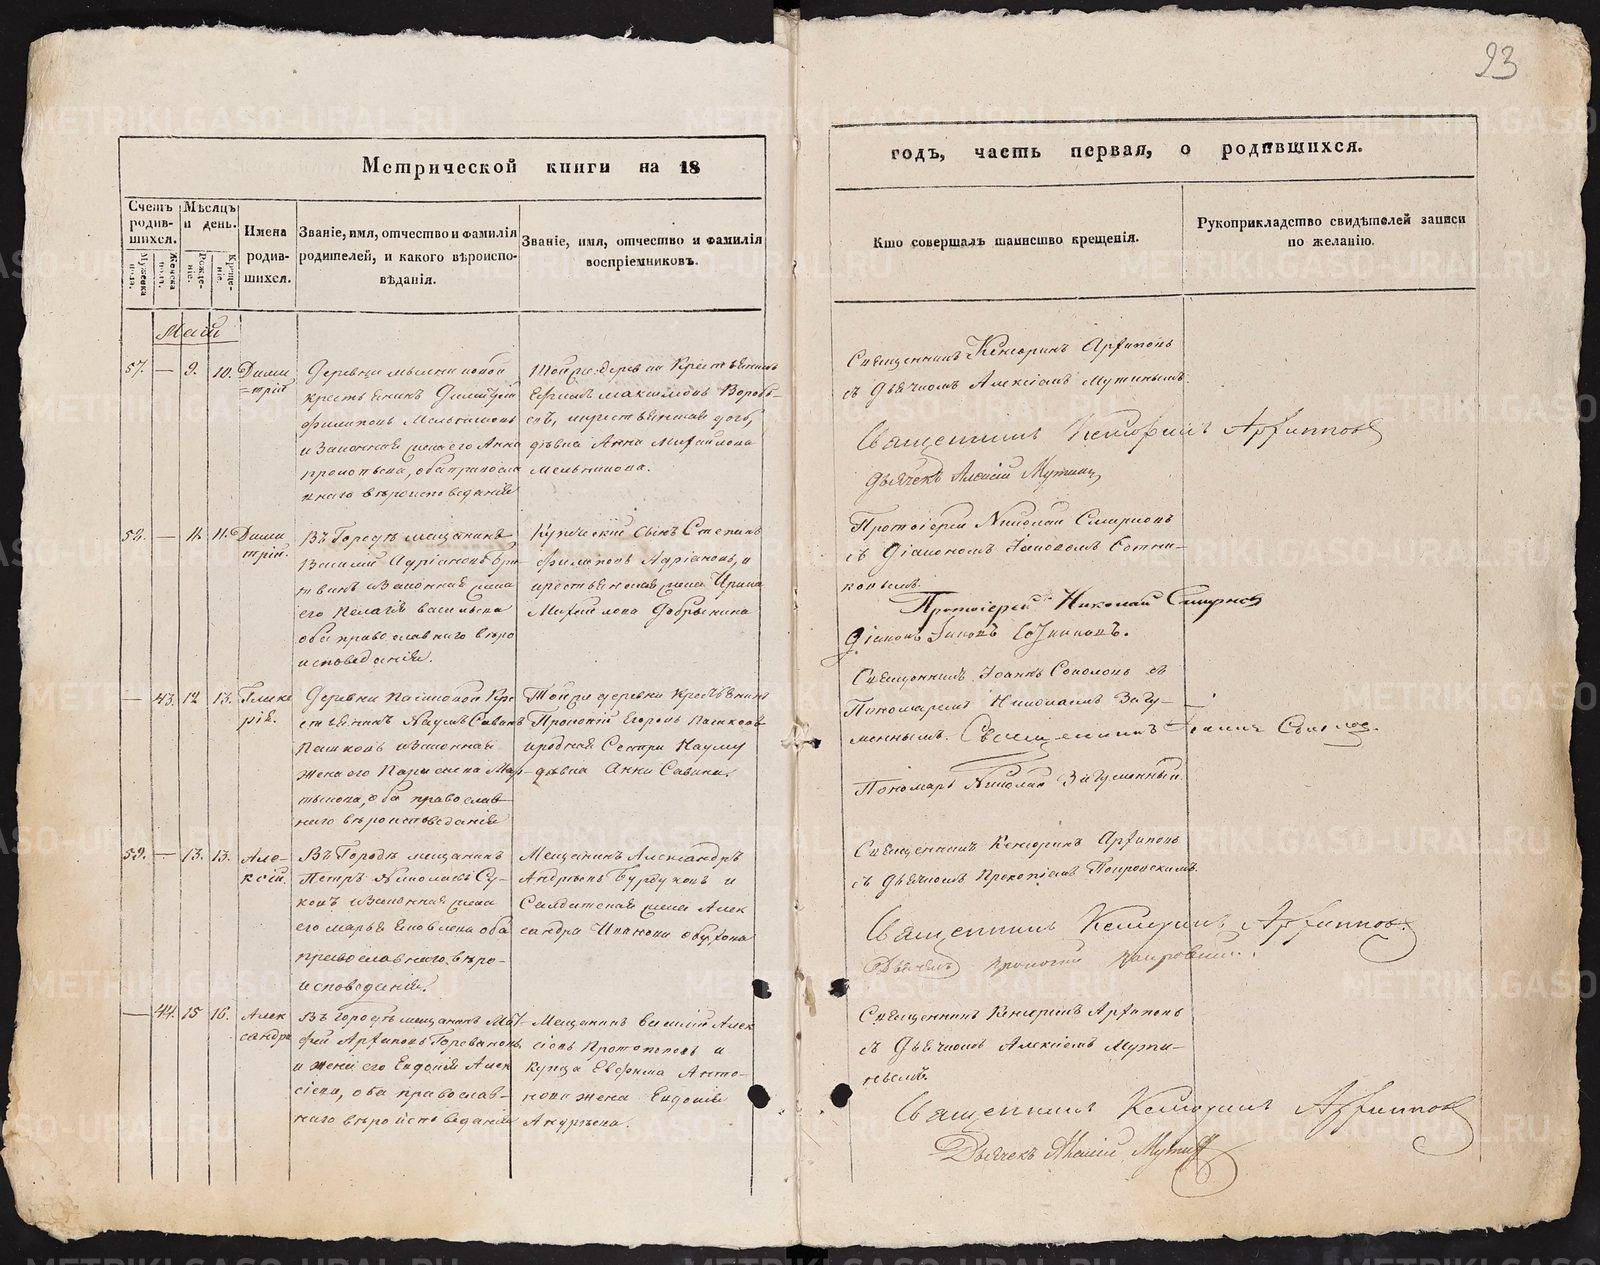 93
Метрической книги на 18
годъ, часть первая, о родившихся.
Счетъ родив-
шихся.
Мужеска пола.
Женска пола.
Мѣсяцъ
и день.
Рожде-
ніе.
Креще-
ніе.
Имена
родив-
шихся.
Званіе, имя, отчество и фамилія
родителей, и какого вѣроиспо-
вѣданія.
Званіе, имя, отчество и фамилія
воспріемниковъ.
Кто совершалъ таинство крещенія.
Рукоприкладство свидѣтелей записи
по желанію.
Маій
57. — 9. 10. Дими
=трій
Деревни
крестьянинъ
Филиповъ
и законная жена его Анна
Прокопьева, оба православ
наго вѣроисповеданія
Тойже деревни Крестьянинъ
Максимовъ Воробь-
евъ, и крестьянская дочь,
дѣвка Анна Михайлова
Мельникова.
Священникъ Кенсоринъ Арѳиповъ
съ Дьячкомъ Алексіемъ Мутинымъ
Священникъ Кенсоринъ Арѳиповъ
Дьячекъ Алексій Мутинъ
58. — 11. 11. Дими
трій.
Въ Городѣ мещанинъ
Василій Адріановъ
и Законная жена
его Пелагія Васильева
оба православнаго вѣро
исповеданія.
Купеческій Сынъ Степанъ
Филиповъ Адріановъ, и
крестьянская жена Ирина
Михайлова Добрынина
Протоіерей Николай Смирновъ
съ Діакономъ Іаковомъ Сотни-
ковымъ.
Протоіерей Николай Смирновъ
Діаконъ Іаковъ Сотниковъ.
— 43. 12 13. Глике
рія.
Деревни Пашковой Кре
стьянинъ Наумъ Савинъ
Пашковъ и Законная
жена его Параскева Мар-
тынова, оба православ
наго вѣроисповеданія
Тойже деревни Крестьянинъ
Прокопій Егоровъ Пашковъ
и родная Сестра Науму
дѣвка Анна Савина.
Священникъ Іоаннъ Соколовъ съ
Пономаремъ Николаемъ Загу-
меннымъ. Священникъ Іоаннъ Соколовъ.
Пономарь Николай Загуменный.
59. — 13. 13. Але-
ксій.
Въ Городѣ мещанинъ
Петръ Николаевъ Су-
ковъ и Законная жена
его Марья Яковлева оба
православнаго вѣро-
исповеданія.
Мещанинъ Александръ
Андрѣевъ Бурдуковъ и
Салдатская жена Алек
сандра Иванова Обухова
Священникъ Кенсоринъ Арѳиповъ
съ Дьячкомъ Прокопіемъ Покровскимъ.
Священникъ Кенсоринъ Арѳиповъ.
Дьячекъ Прокопій Покровскій.
— 44. 15 16. Алек
сандра
Въ городѣ мещанинъ Мат-
фей Арѳиповъ Гореванов
и жена его Евдокія Алек
сіева, оба православ-
наго вѣроисповеданія
Мещанинъ Василій Алек
сіевъ Протопоповъ и
купца Евфима Анто-
нова жена Евдокія
Андрѣева.
Священникъ Кенсоринъ Арѳиповъ
съ Дьячкомъ Алексіемъ Мути-
нымъ.
Священникъ Кенсоринъ Арѳиповъ
Дьячекъ Алексій Мутинъ
METRIKI.GASO-URAL.RU